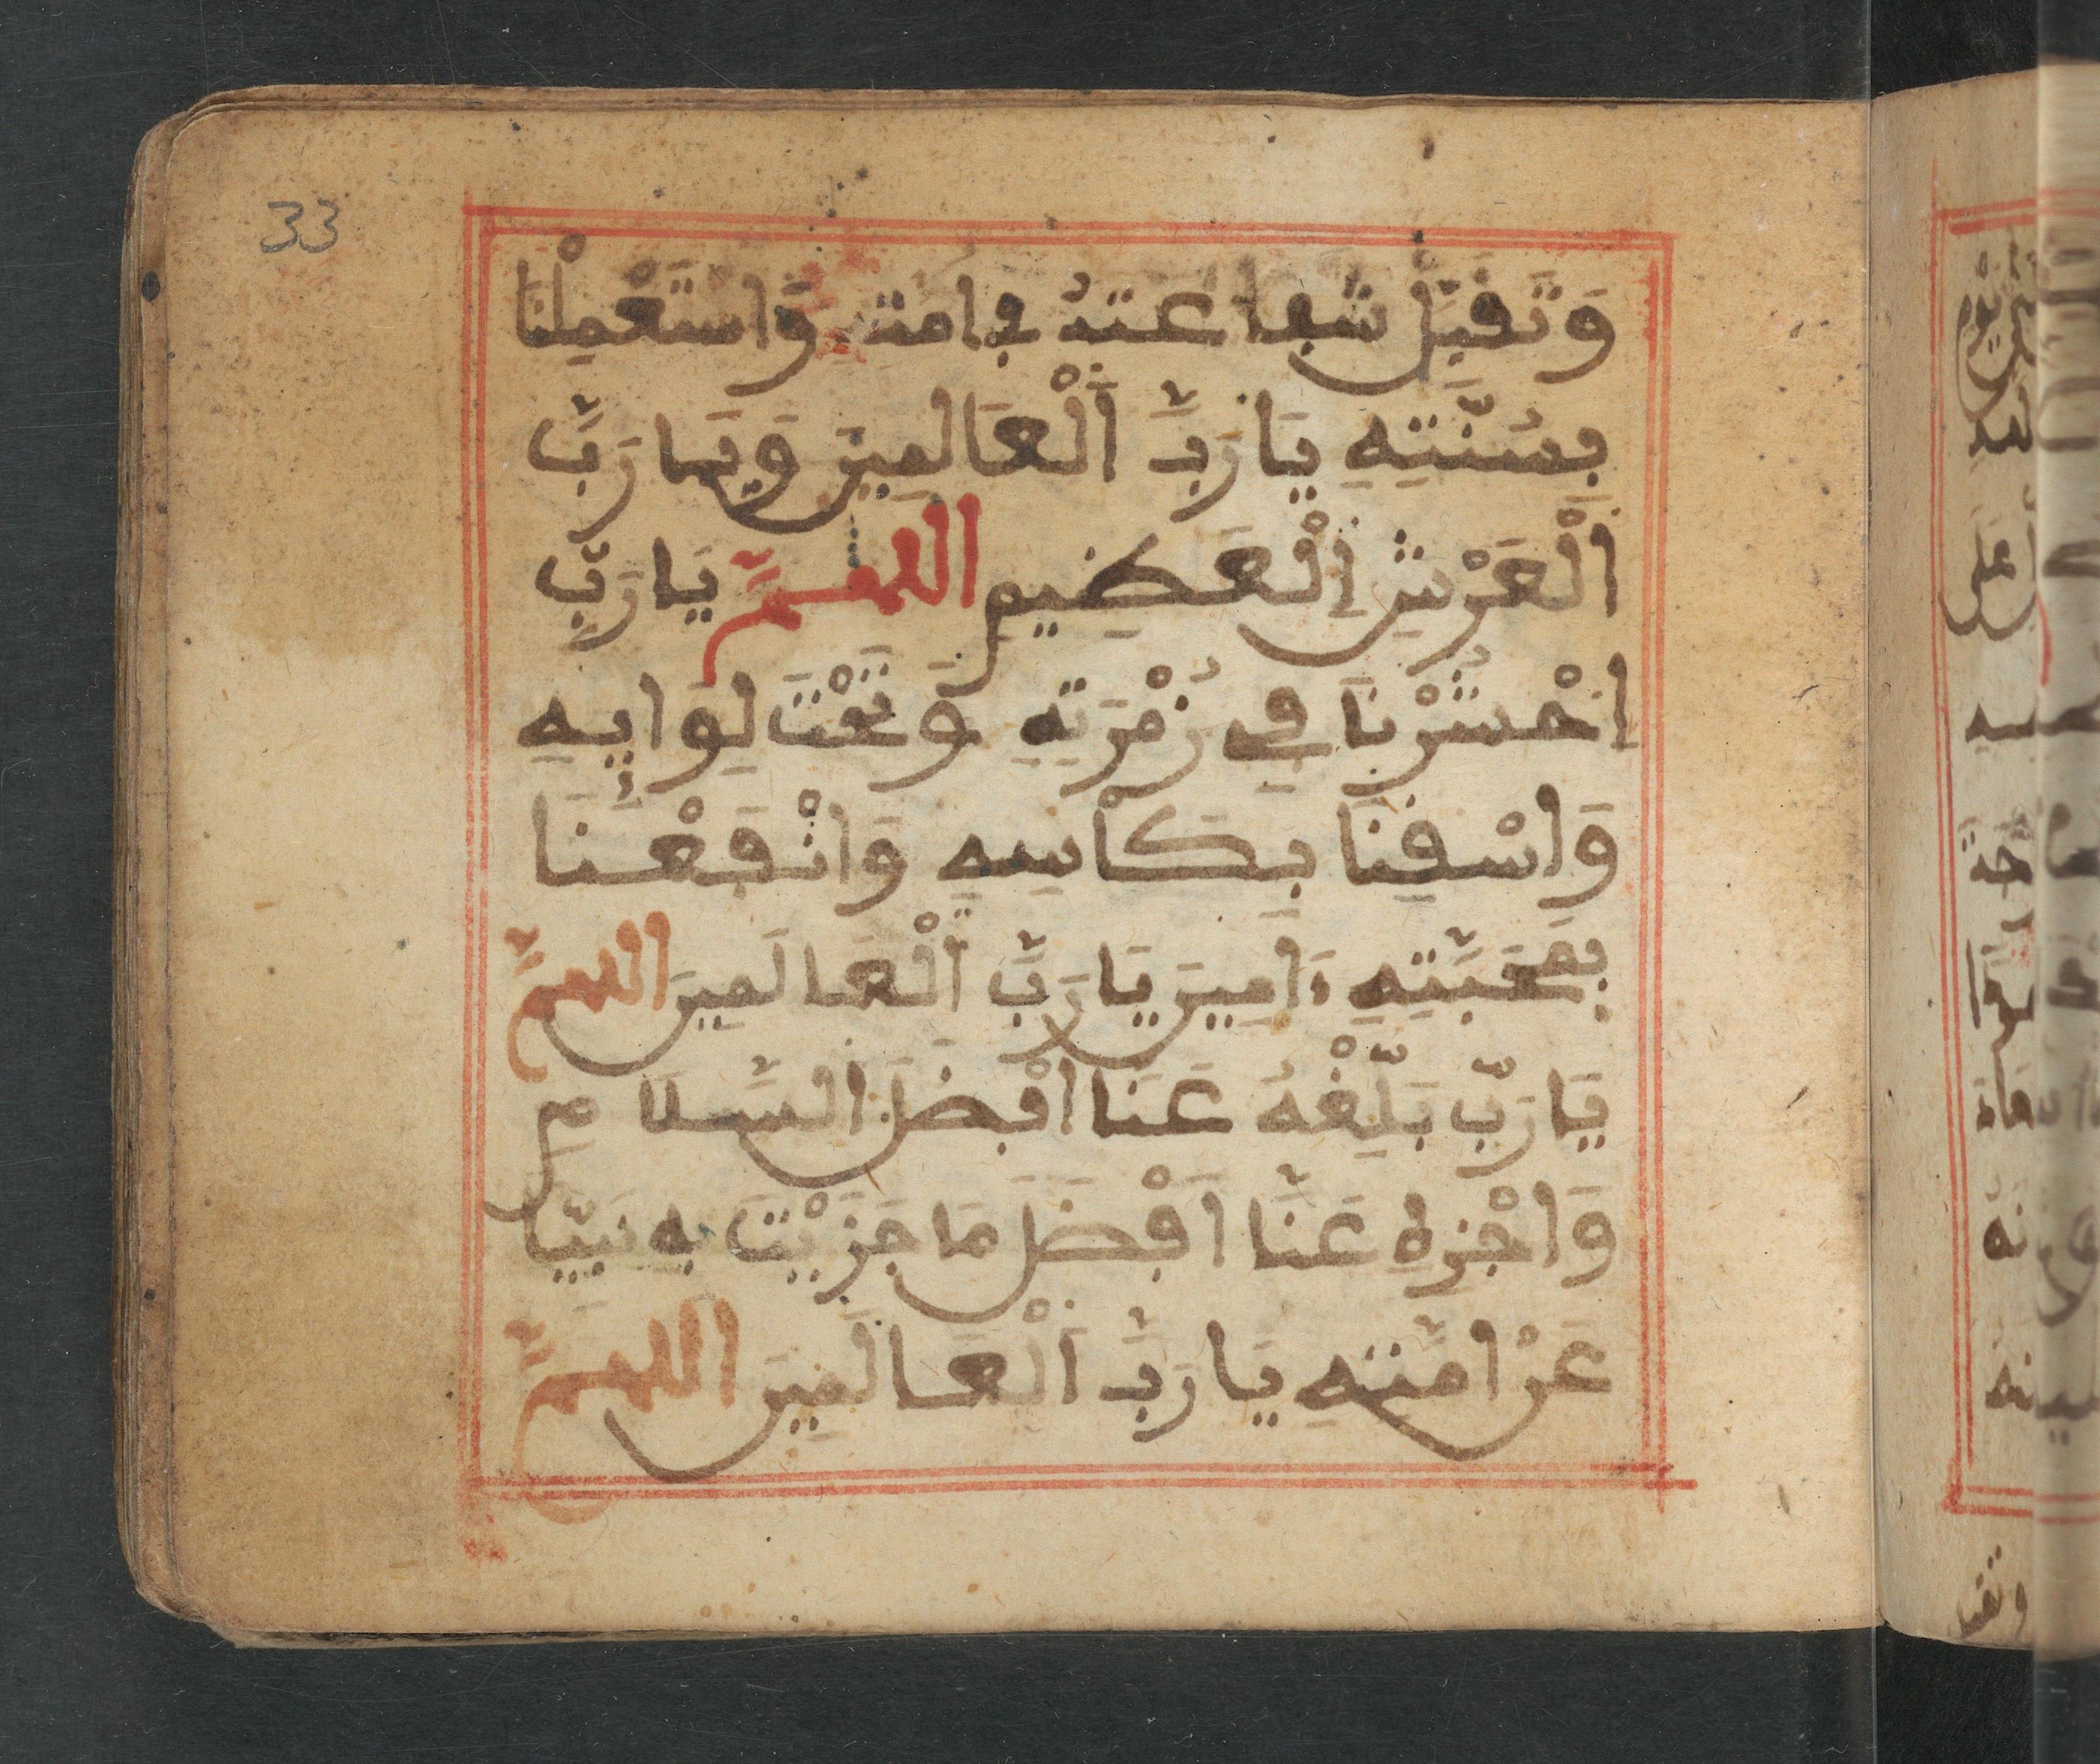 33
وَتَقَبَّلْ شَفَاعَتَهُ فِي امته وَاسْتَعْمِلْنَا
بِسُنَّتِهِ يَا رَبَّ اَلْعَالَمِينَ وَيَا رَبَّ
اَلْعَرْشِ اِلْعَظِيمِ اللهمَّ يَا رَبِّ
احْشُرْنَا فِي زُمْرَتِهِ وَتَحْتَ لِوَائِهِ
وَاسْقِنَا بِكَأْسِهِ وَانْفَعْنَا
بِمَحَبَّتِهِ ءَامِينَ يَا رَبَّ اَلْعَالَمِينَ اللهمَّ
يَا رَبِّ بَلِّغْهُ عَنَا افْضَلَ السَّلَامِ
وَاجْزِهِ عَنَّا اَفْضَلَ مَا جَزَيْتَ بِهِ نَبِيّا
عَنْ امَّتِهِ يَا رَبَّ اَلْعَالَمِينَ اللهمَّ